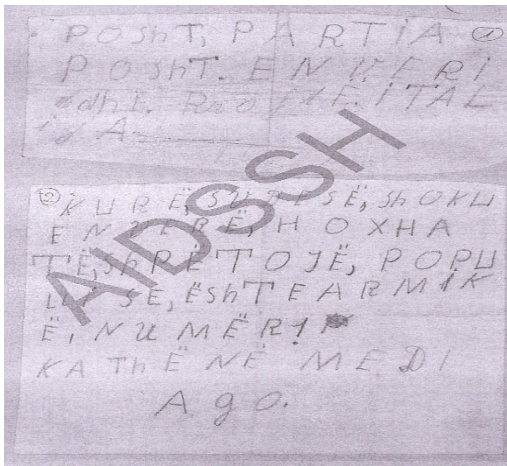 POShT, PARTIA ①
POShT. ENVERI
edhE. RROFTË. ITAL
iJA
② KURË, SHOKU
ENVERË, HOXHA
TË, ShPËTOJË, POPU
SE, ËShTEARMiK
Ë, NUMËR 1
KA ThËNË MEDI
Ago.
AIDSSH